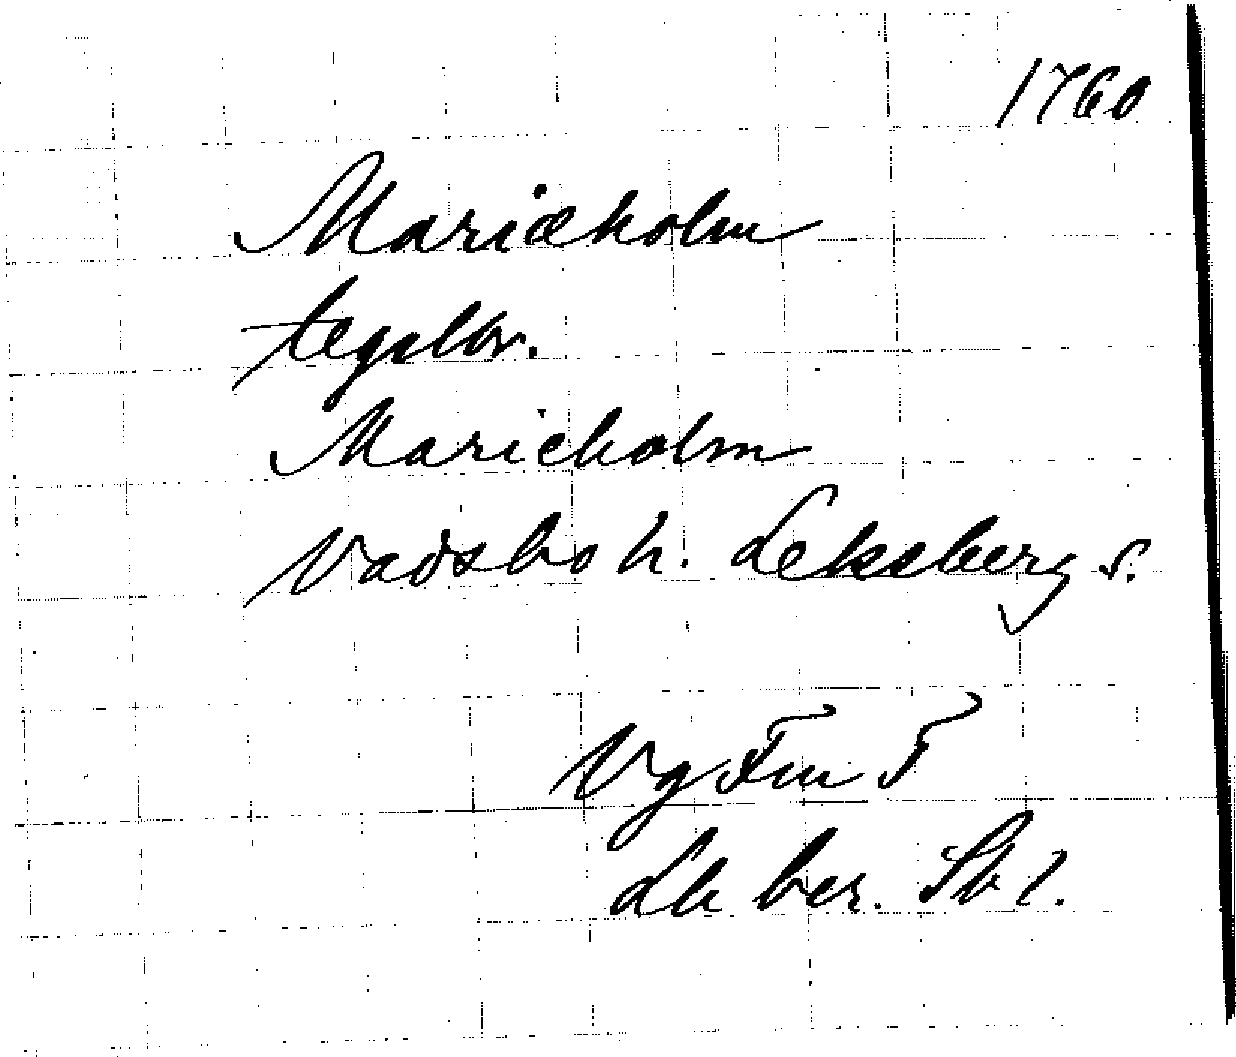 1760
Mariæholm
tegelbr.
Marieholm
Vadsbo h. Leksberg s.
Vg Fm T
Lh ber. Sb 2.